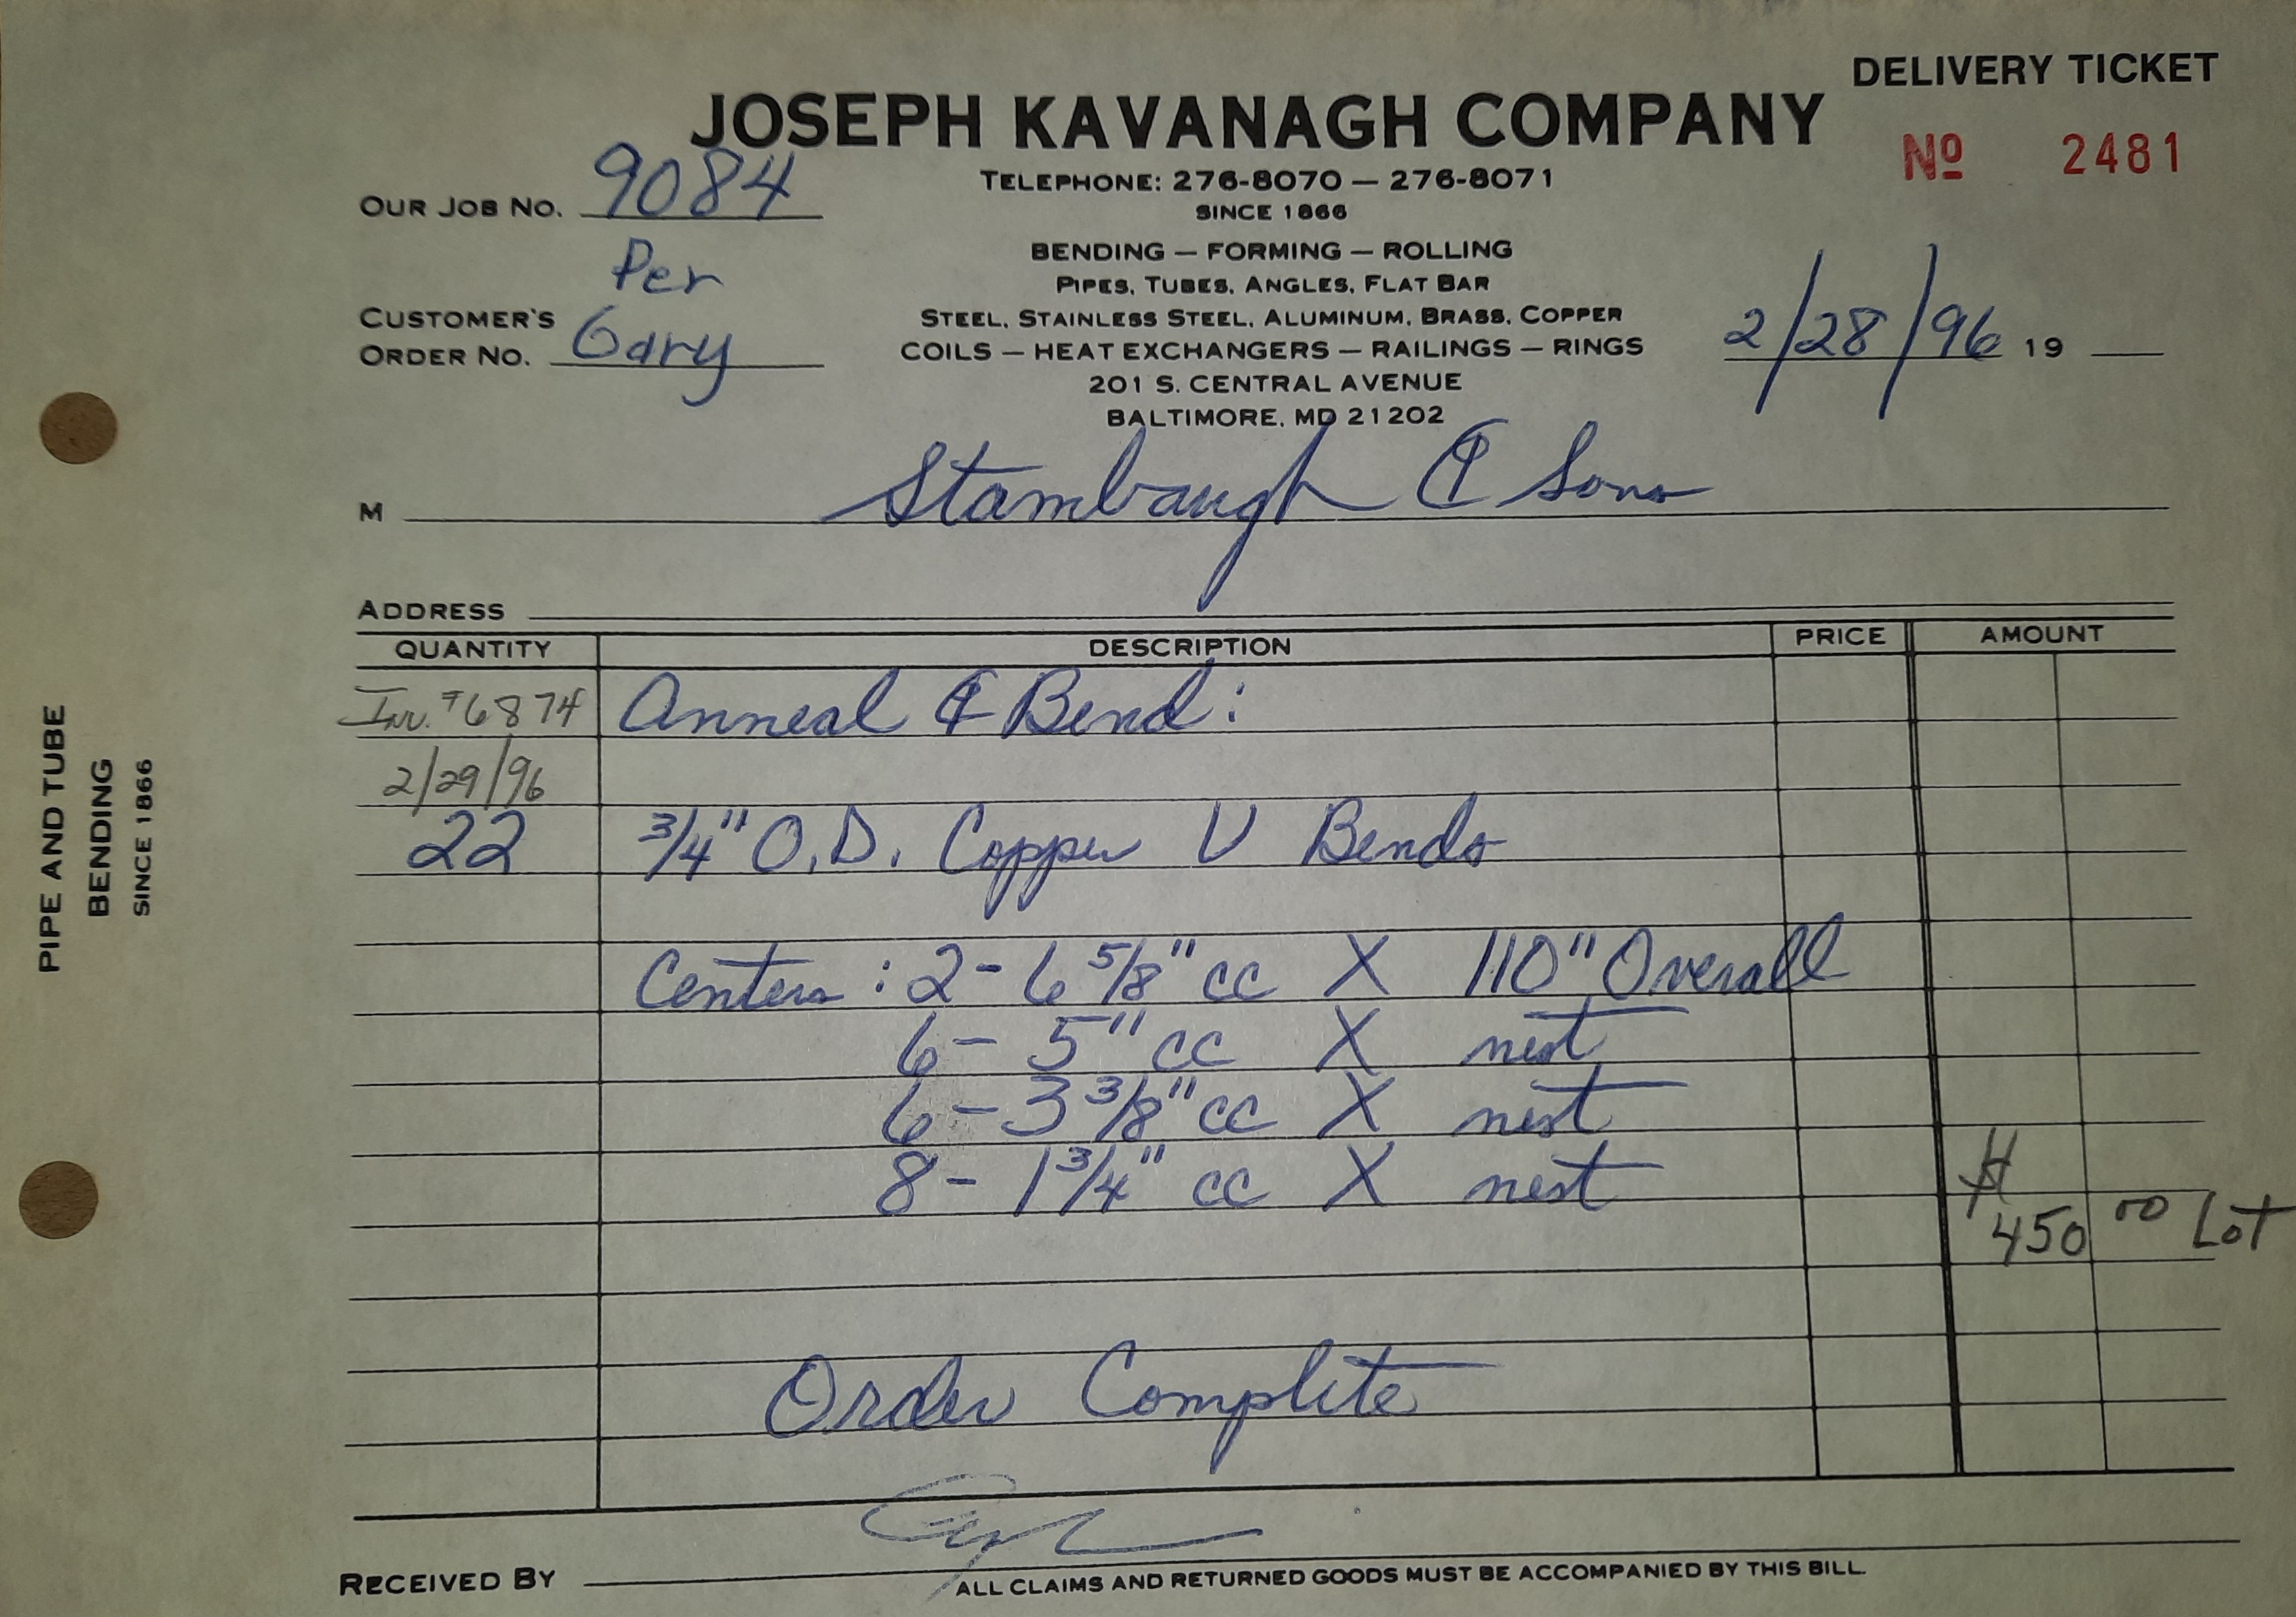 DELIVERY TICKET
JOSEPH KAVANAGH COMPANY
Nº 2481
TELEPHONE: 276-8070 — 276-8071
OUR JOB NO. 9084
SINCE 1866
BENDING — FORMING — ROLLING
PIPES, TUBES, ANGLES, FLAT BAR
STEEL, STAINLESS STEEL, ALUMINUM, BRASS, COPPER
COILS — HEAT EXCHANGERS — RAILINGS — RINGS
201 S. CENTRAL AVENUE
BALTIMORE, MD 21202
Per
CUSTOMER'S
ORDER NO. Gary
2/28/96 19
M Stambaugh & Sons
ADDRESS
QUANTITY DESCRIPTION PRICE AMOUNT
Inv. #6874 Anneal & Bend:
2/29/96
22 3/4" O.D. Copper U Bends
Centers: 2 - 6 5/8" cc X 110" Overall
6 - 5" cc X nest
6 - 3 3/8" cc X nest
8 - 1 3/4" cc X nest
$ 450 00 Lot
Order Complete
RECEIVED BY
ALL CLAIMS AND RETURNED GOODS MUST BE ACCOMPANIED BY THIS BILL.
PIPE AND TUBE
BENDING
SINCE 1866